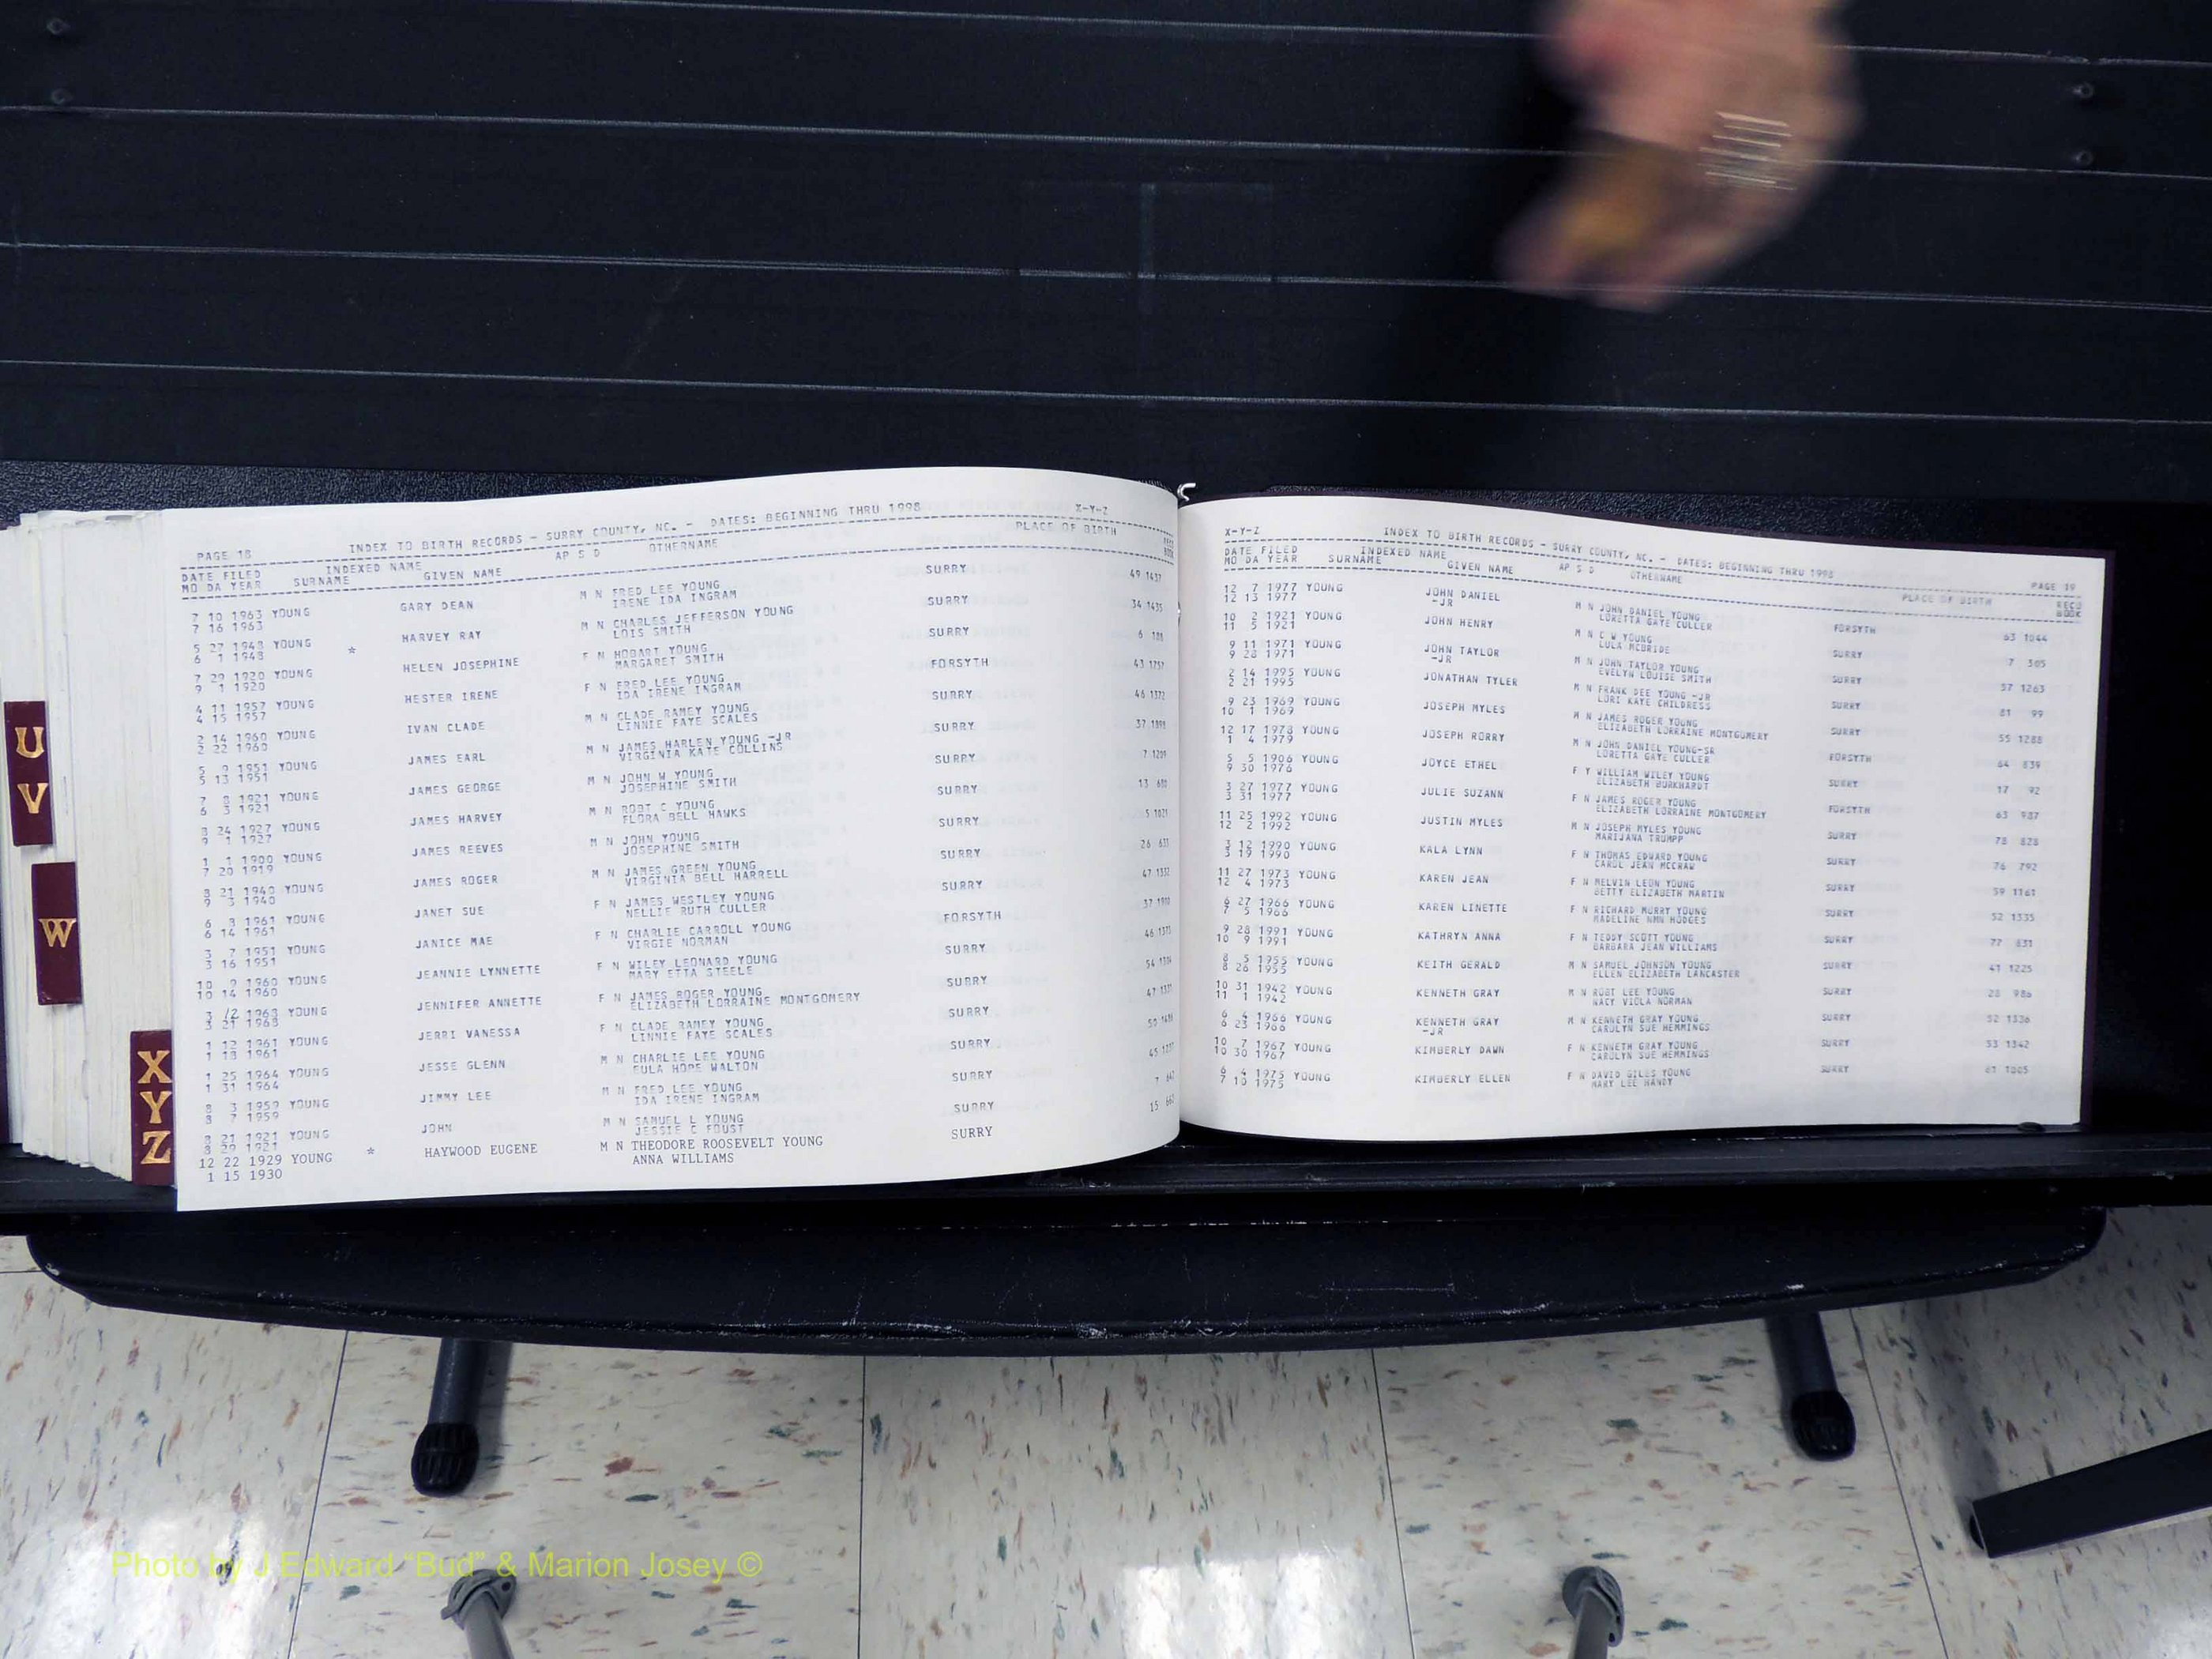 PAGE 18 INDEX TO BIRTH RECORDS - SURRY COUNTY, NC. - DATES: BEGINNING THRU 1998 X-Y-Z
DATE FILED INDEXED NAME AP S D OTHERNAME PLACE OF BIRTH
MO DA YEAR SURNAME GIVEN NAME
7 10 1963 YOUNG GARY DEAN M N FRED LEE YOUNG SURRY 49 1437
7 16 1963 IRENE IDA INGRAM
5 27 1948 YOUNG HARVEY RAY M N CHARLES JEFFERSON YOUNG SURRY 34 1435
6 1 1948 * LOIS SMITH
7 29 1920 YOUNG HELEN JOSEPHINE F N HOBART YOUNG SURRY 6
9 1 1920 MARGARET SMITH
4 11 1957 YOUNG HESTER IRENE F N FRED LEE YOUNG FORSYTH 43
4 15 1957 IDA IRENE INGRAM
2 14 1960 YOUNG IVAN CLADE M N CLADE RAMEY YOUNG SURRY 46 1372
2 22 1960 LINNIE FAYE SCALES
5 9 1951 YOUNG JAMES EARL M N JAMES HARLEN YOUNG -JR SURRY 37
5 13 1951 VIRGINIA KATE COLLINS
7 8 1921 YOUNG JAMES GEORGE M N JOHN W YOUNG SURRY 7
6 3 1921 JOSEPHINE SMITH
8 24 1927 YOUNG JAMES HARVEY M N ROBT C YOUNG SURRY 13
9 1 1927 FLORA BELL HAWKS
1 1 1900 YOUNG JAMES REEVES M N JOHN YOUNG SURRY 5
7 20 1919 JOSEPHINE SMITH
8 21 1940 YOUNG JAMES ROGER M N JAMES GREEN YOUNG SURRY 26
9 3 1940 VIRGINIA BELL HARRELL
6 8 1961 YOUNG JANET SUE F N JAMES WESTLEY YOUNG SURRY 47
6 14 1961 NELLIE RUTH CULLER
3 7 1951 YOUNG JANICE MAE F N CHARLIE CARROLL YOUNG FORSYTH 37
3 16 1951 VIRGIE NORMAN
10 9 1960 YOUNG JEANNIE LYNNETTE F N WILEY LEONARD YOUNG SURRY 46
10 14 1960 MARY ETTA STEELE
3 12 1968 YOUNG JENNIFER ANNETTE F N JAMES ROGER YOUNG SURRY 54
3 21 1968 ELIZABETH LORRAINE MONTGOMERY
1 12 1961 YOUNG JERRI VANESSA F N CLADE RAMEY YOUNG SURRY 47
1 18 1961 LINNIE FAYE SCALES
1 25 1964 YOUNG JESSE GLENN M N CHARLIE LEE YOUNG SURRY 50
1 31 1964 EULA HOPE WALTON
8 3 1959 YOUNG JIMMY LEE M N FRED LEE YOUNG SURRY 45
8 7 1959 IDA IRENE INGRAM
8 21 1921 YOUNG JOHN M N SAMUEL L YOUNG SURRY 7
8 29 1921 JESSIE C FOUST
12 22 1929 YOUNG * HAYWOOD EUGENE M N THEODORE ROOSEVELT YOUNG SURRY 15
1 15 1930 ANNA WILLIAMS
X-Y-Z INDEX TO BIRTH RECORDS - SURRY COUNTY, NC. - DATES: BEGINNING THRU 1998 PAGE 19
DATE FILED INDEXED NAME AP S D OTHERNAME PLACE OF BIRTH
MO DA YEAR SURNAME GIVEN NAME BOOK
12 7 1977 YOUNG JOHN DANIEL M N JOHN DANIEL YOUNG FORSYTH 63 1044
12 13 1977 -JR LORETTA GAYE CULLER
10 2 1921 YOUNG JOHN HENRY M N C W YOUNG SURRY 7 305
11 5 1921 LULA MCBRIDE
9 11 1971 YOUNG JOHN TAYLOR M N JOHN TAYLOR YOUNG SURRY 57 1263
9 28 1971 -JR EVELYN LOUISE SMITH
2 14 1995 YOUNG JONATHAN TYLER M N FRANK DEE YOUNG -JR SURRY 81 99
2 21 1995 LORI KAYE CHILDRESS
9 23 1969 YOUNG JOSEPH MYLES M N JAMES ROGER YOUNG SURRY 55 1288
10 1 1969 ELIZABETH LORRAINE MONTGOMERY
12 17 1978 YOUNG JOSEPH RORRY M N JOHN DANIEL YOUNG-SR FORSYTH 64 839
1 4 1979 LORETTA GAYE CULLER
5 5 1906 YOUNG JOYCE ETHEL F Y WILLIAM WILEY YOUNG SURRY 17 92
9 30 1976 ELIZABETH BURKHARDT
3 27 1977 YOUNG JULIE SUZANN F N JAMES ROGER YOUNG FORSYTH 63 987
3 31 1977 ELIZABETH LORRAINE MONTGOMERY
11 25 1992 YOUNG JUSTIN MYLES M N JOSEPH MYLES YOUNG SURRY 78 828
12 2 1992 MARIJANA TRUMPP
3 12 1990 YOUNG KALA LYNN F N THOMAS EDWARD YOUNG SURRY 76 792
3 19 1990 CAROL JEAN MCCRAW
11 27 1973 YOUNG KAREN JEAN F N MELVIN LEON YOUNG SURRY 59 1161
12 4 1973 BETTY ELIZABETH MARTIN
6 27 1966 YOUNG KAREN LINETTE F N RICHARD MURRY YOUNG SURRY 52 1335
7 5 1966 MADELINE NMN HODGES
9 28 1991 YOUNG KATHRYN ANNA F N TEDDY SCOTT YOUNG SURRY 77 831
10 9 1991 BARBARA JEAN WILLIAMS
8 5 1955 YOUNG KEITH GERALD M N SAMUEL JOHNSON YOUNG SURRY 41 1225
8 26 1955 ELLEN ELIZABETH LANCASTER
10 31 1942 YOUNG KENNETH GRAY M N ROBT LEE YOUNG SURRY 28 986
11 1 1942 NACY VIOLA NORMAN
6 4 1966 YOUNG KENNETH GRAY M N KENNETH GRAY YOUNG SURRY 52 1336
6 23 1966 -JR CAROLYN SUE HEMMINGS
10 7 1967 YOUNG KIMBERLY DAWN F N KENNETH GRAY YOUNG SURRY 53 1342
10 30 1967 CAROLYN SUE HEMMINGS
6 4 1975 YOUNG KIMBERLY ELLEN F N DAVID GILES YOUNG SURRY 61 1005
7 10 1975 MARY LEE HANDY
U
V
W
X
Y
Z
Photo by J Edward “Bud” & Marion Josey ©